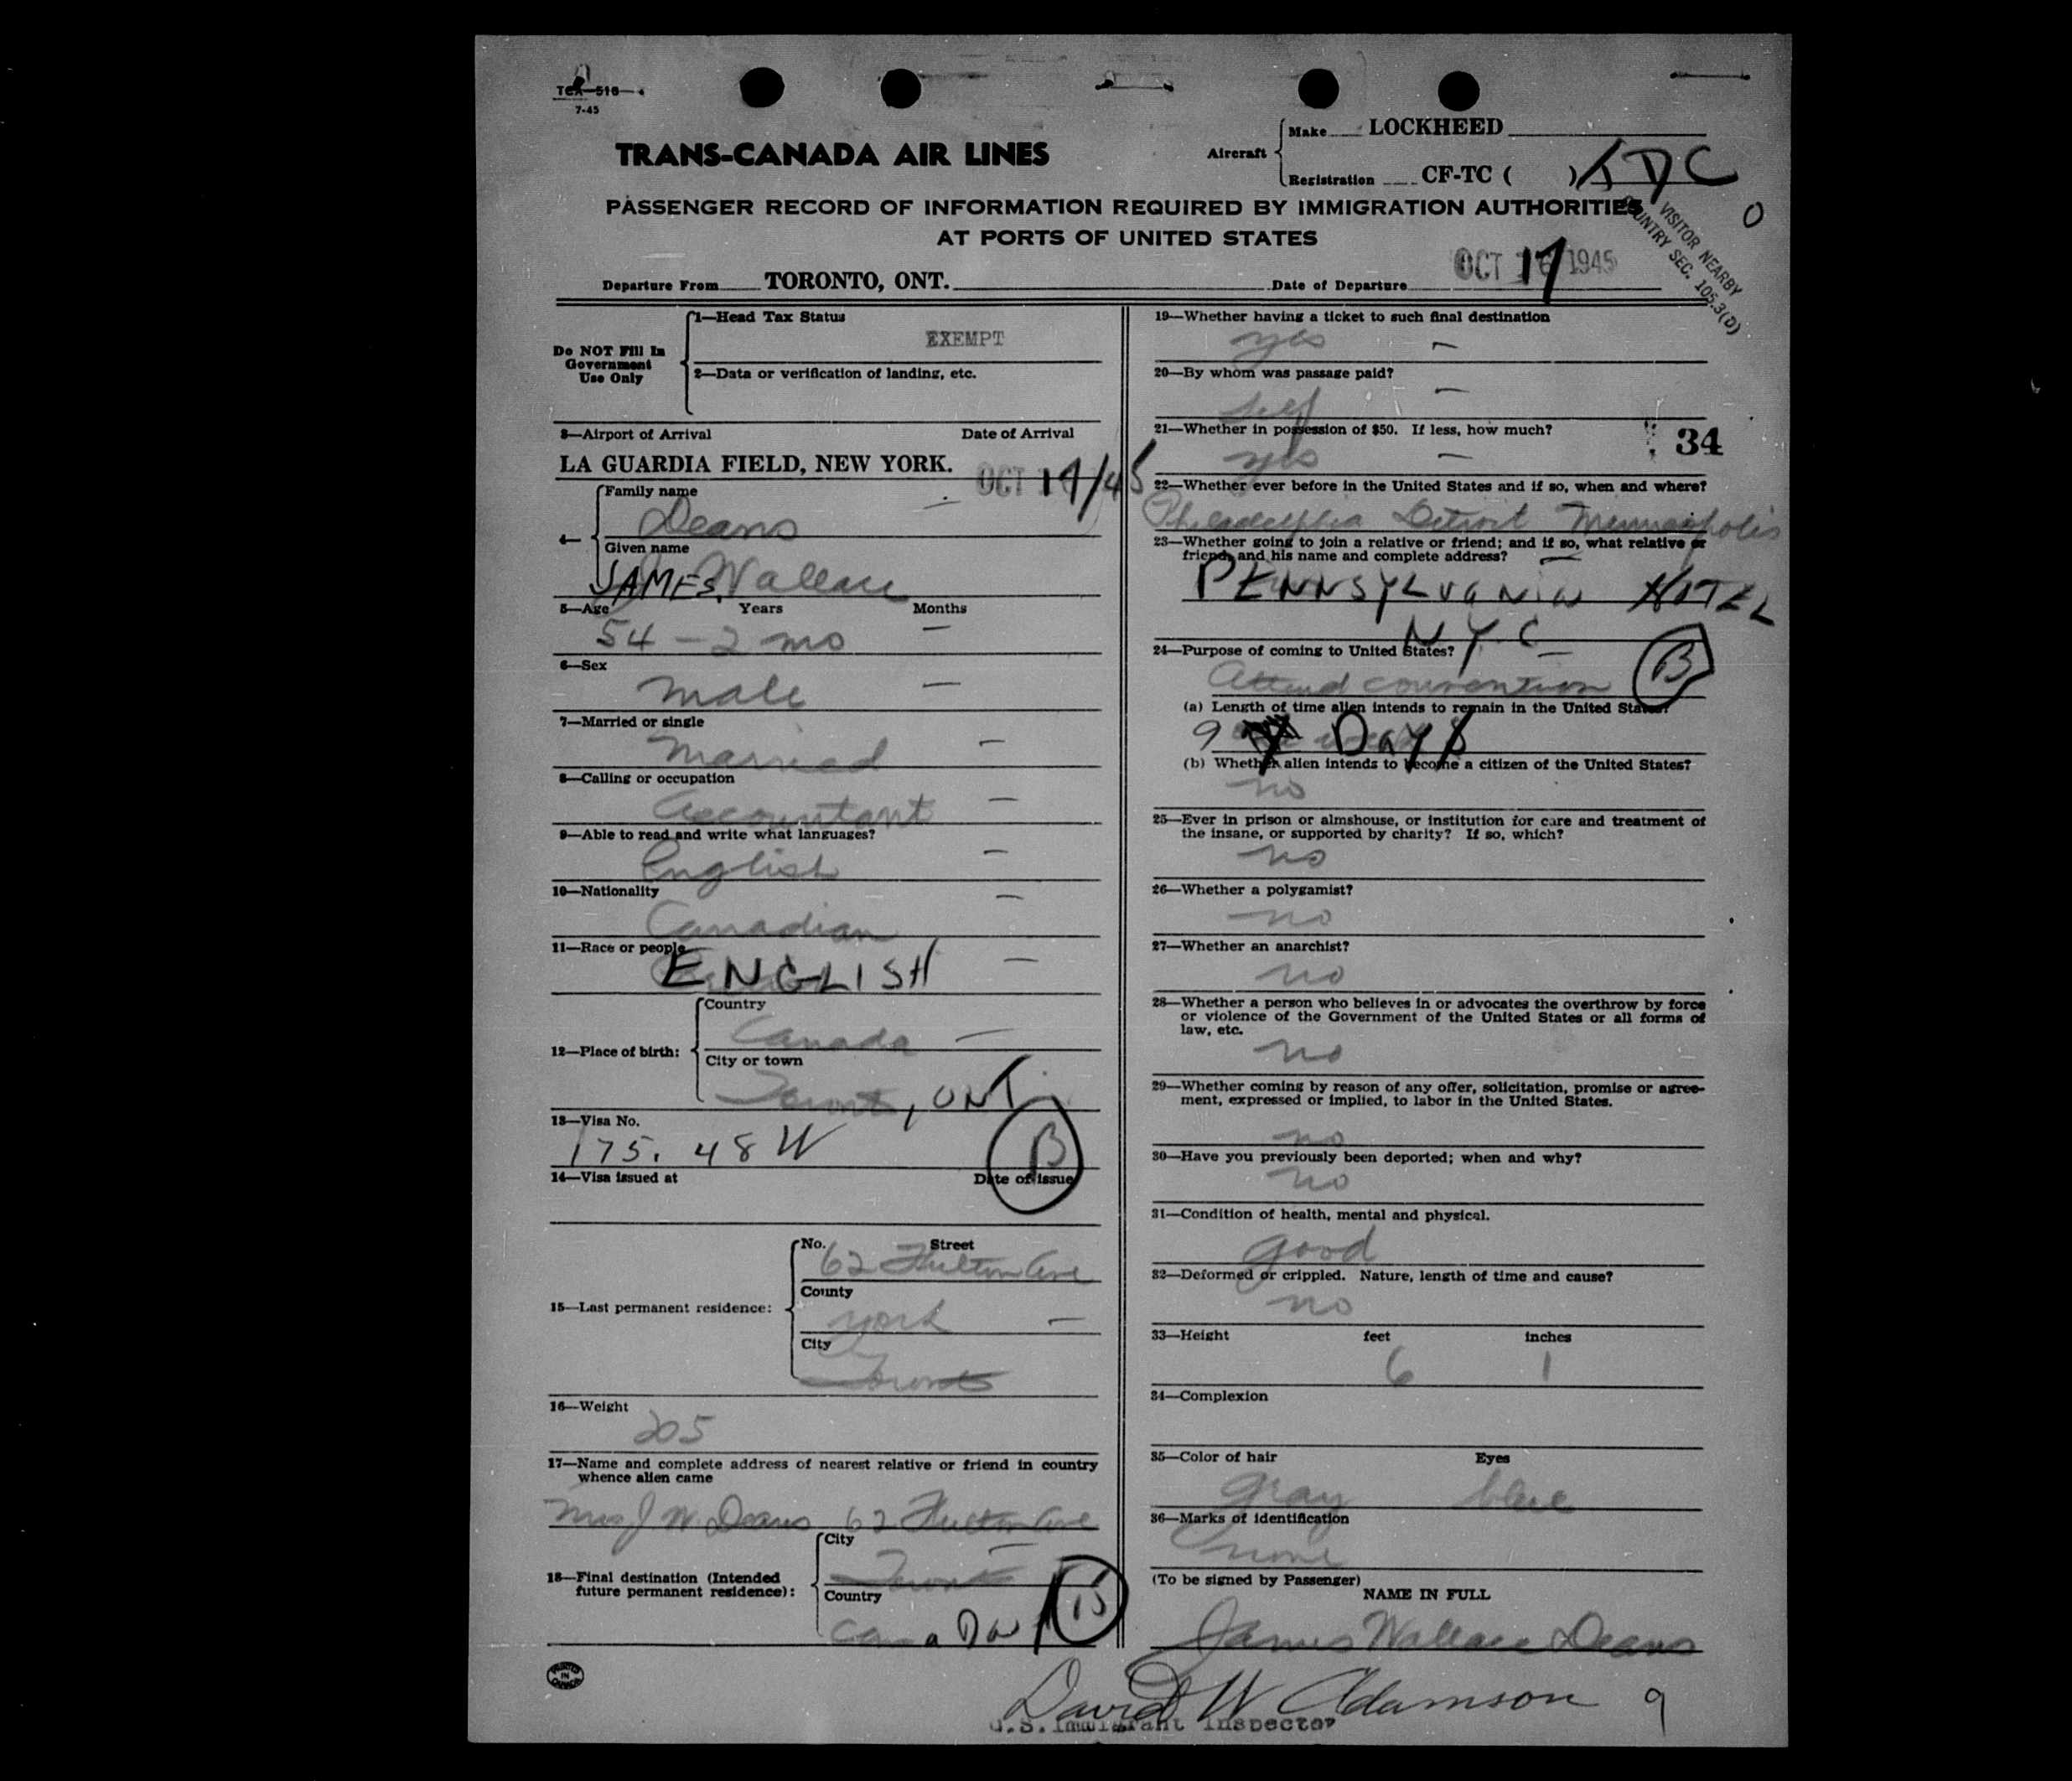 TCA-516
7-45
TRANS-CANADA AIR LINES
Aircraft
Make LOCKHEED
Registration CF-TC ( ) TDC
PASSENGER RECORD OF INFORMATION REQUIRED BY IMMIGRATION AUTHORITIES
AT PORTS OF UNITED STATES
VISITOR NEARBY
COUNTRY SEC. 105.3(D)
Departure From TORONTO, ONT. Date of Departure OCT 17 1945
Do NOT Fill In
Government
Use Only
1—Head Tax Status
EXEMPT
2—Data or verification of landing, etc.
3—Airport of Arrival Date of Arrival
LA GUARDIA FIELD, NEW YORK. OCT 17/45
4—
Family name
Deans
Given name
JAMES, Wallace
5—Age Years Months
54 - 2 mo
6—Sex
male
7—Married or single
married
8—Calling or occupation
Accountant
9—Able to read and write what languages?
English
10—Nationality
Canadian
11—Race or people
ENGLISH
12—Place of birth:
Country
Canada
City or town
Toronto, ONT.
13—Visa No.
175. 48 W B
14—Visa issued at Date of issue
15—Last permanent residence:
No. Street
62 Fulton Ave
County
York
City
Toronto
16—Weight
205
17—Name and complete address of nearest relative or friend in country
whence alien came
Mrs J W. Deans 62 Fulton Ave
18—Final destination (Intended
future permanent residence):
City
Toronto
Country
CanaDa
PRINTED
IN
CANADA
19—Whether having a ticket to such final destination
yes
20—By whom was passage paid?
self
21—Whether in possession of $50. If less, how much?
34
yes
22—Whether ever before in the United States and if so, when and where?
Philadelphia Detroit Minneapolis
23—Whether going to join a relative or friend; and if so, what relative or
friend, and his name and complete address?
PENNSYLVANIA HOTEL
N.Y.C
24—Purpose of coming to United States?
Attend convention B
(a) Length of time alien intends to remain in the United States?
9 DAYS
(b) Whether alien intends to become a citizen of the United States?
no
25—Ever in prison or almshouse, or institution for care and treatment of
the insane, or supported by charity? If so, which?
no
26—Whether a polygamist?
no
27—Whether an anarchist?
no
28—Whether a person who believes in or advocates the overthrow by force
or violence of the Government of the United States or all forms of
law, etc.
no
29—Whether coming by reason of any offer, solicitation, promise or agree-
ment, expressed or implied, to labor in the United States.
no
30—Have you previously been deported; when and why?
no
31—Condition of health, mental and physical.
good
32—Deformed or crippled. Nature, length of time and cause?
no
33—Height feet inches
6 1
34—Complexion
35—Color of hair Eyes
gray blue
36—Marks of identification
none
(To be signed by Passenger)
NAME IN FULL
James Wallace Deans
David W Adamson 9
U.S. Immigrant Inspector